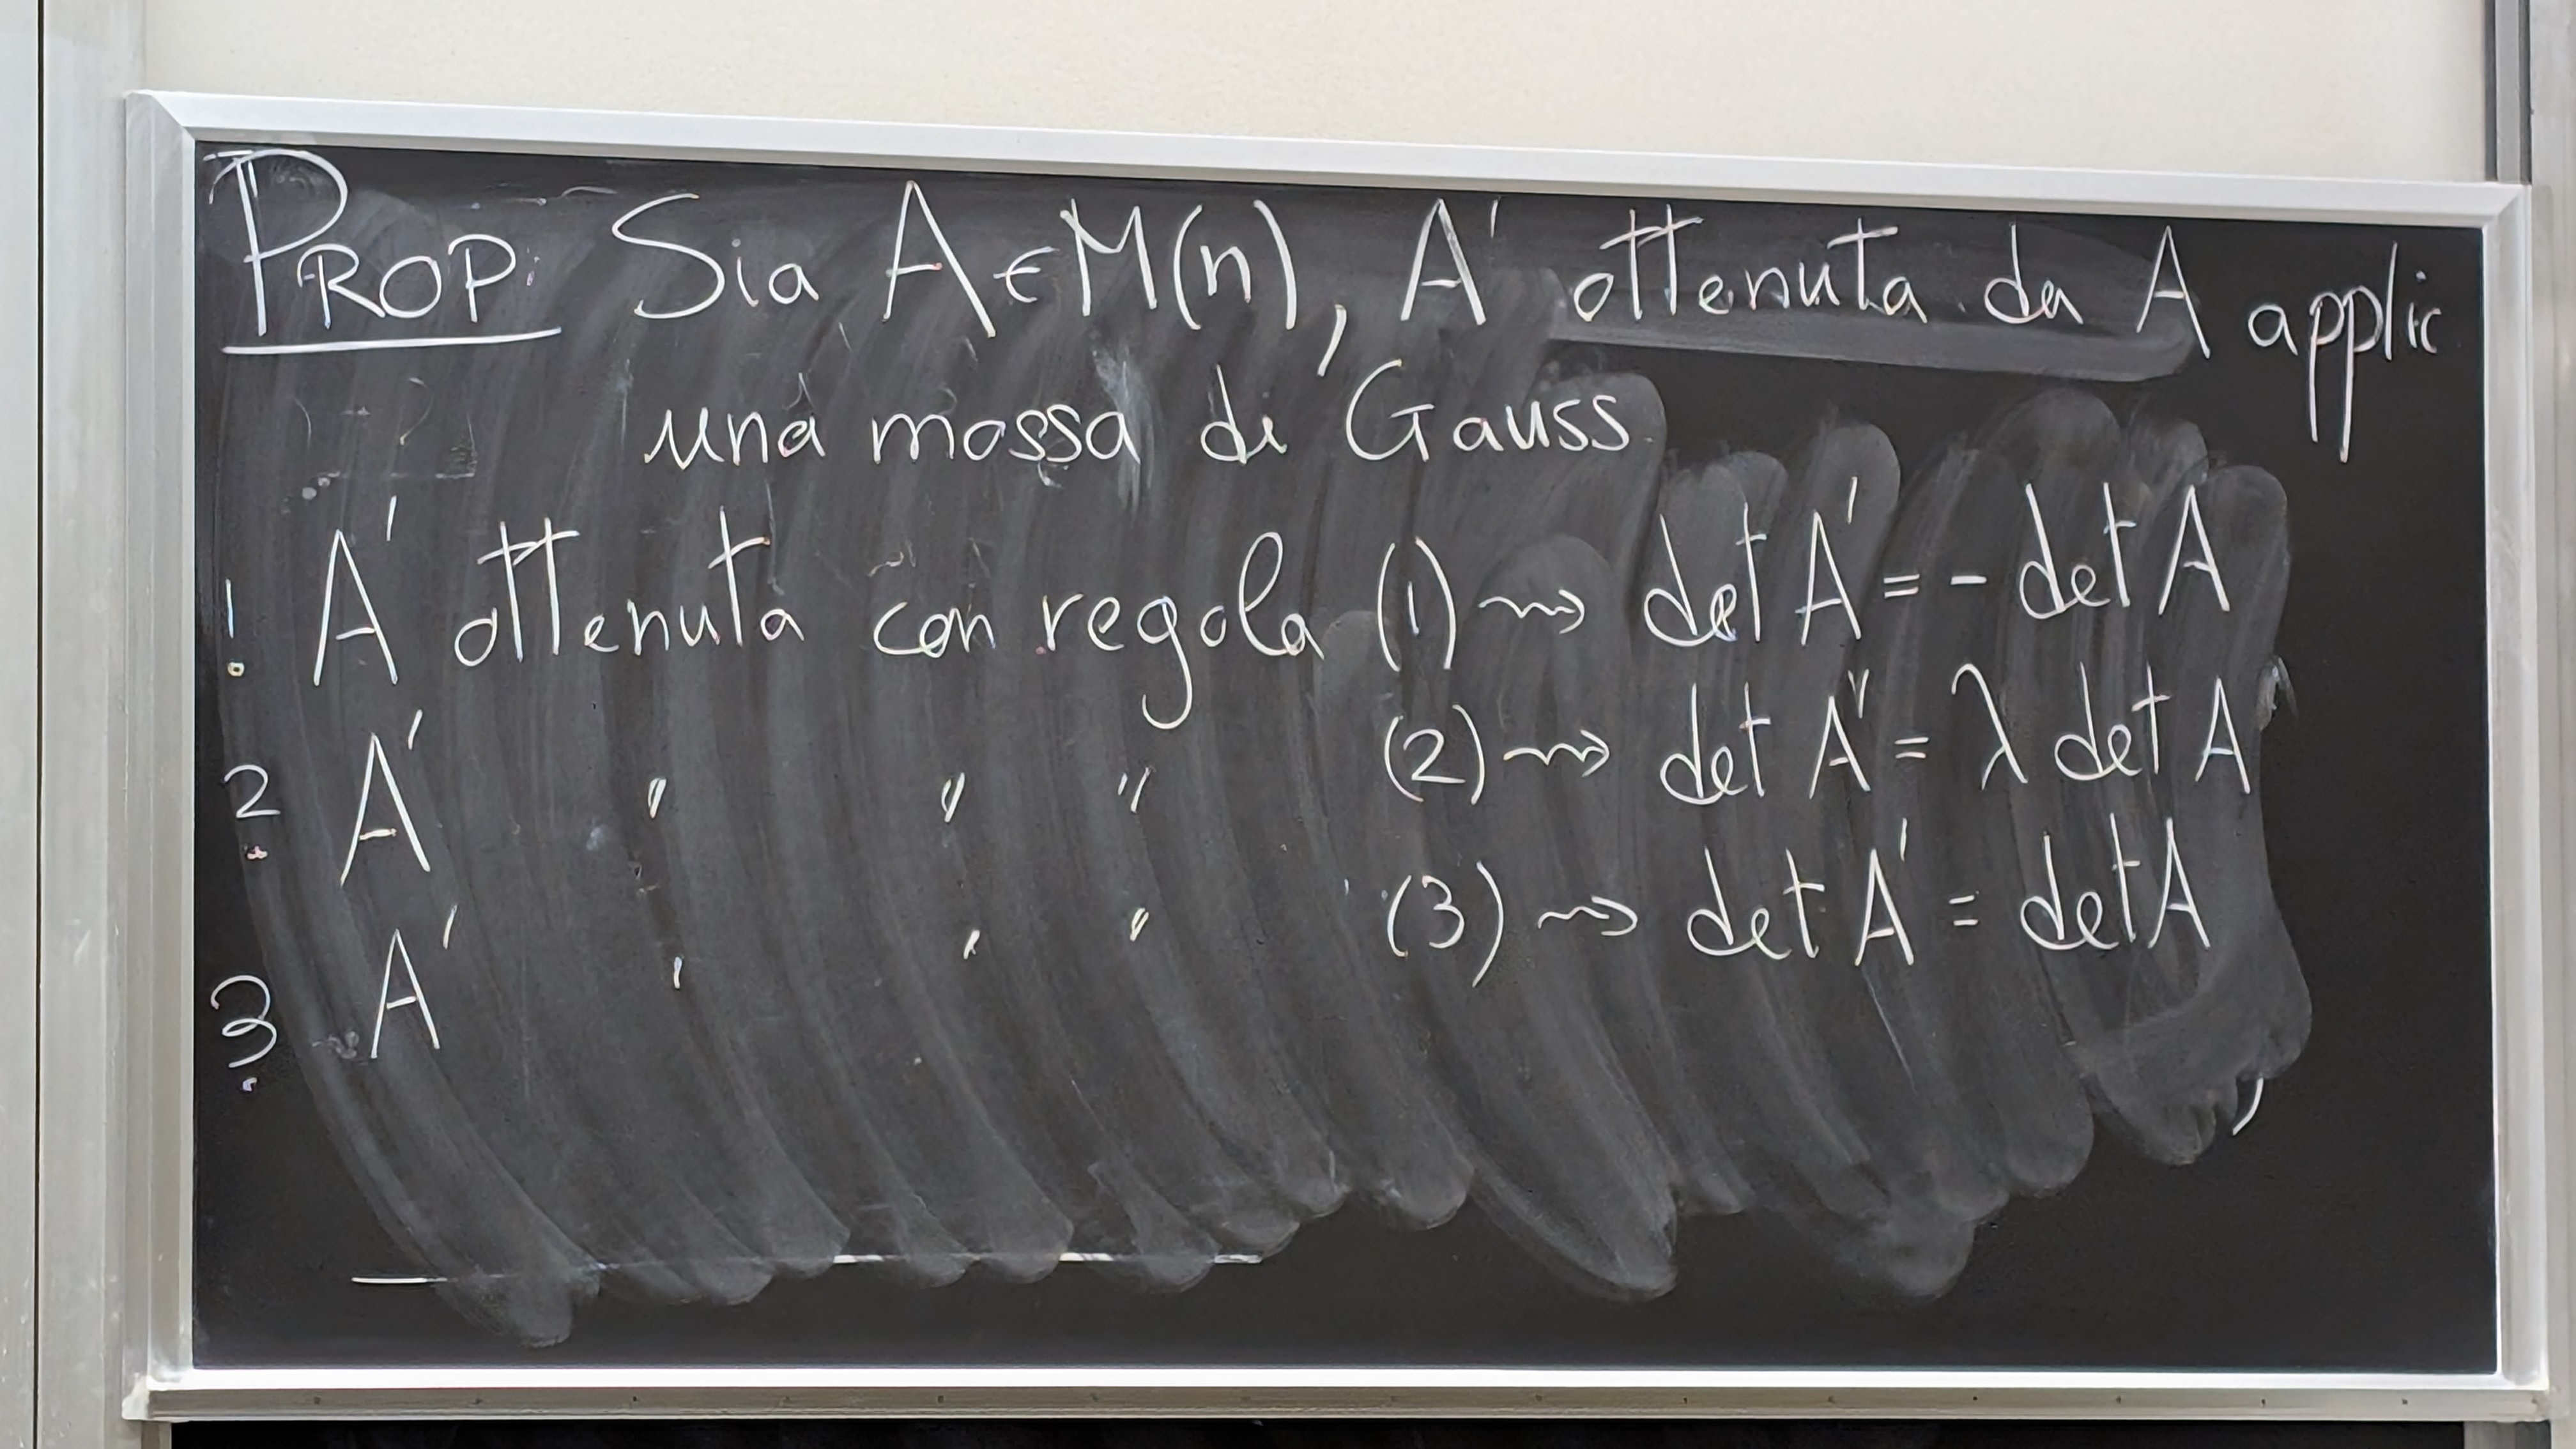 PROP. Sia A ∈ M(n), A' ottenuta da A applic
una mossa di Gauss
1. A' ottenuta con regola (1) ⇝ det A' = - det A
2. A' " " " (2) ⇝ det A' = λ det A
3. A' " " " (3) ⇝ det A' = det A